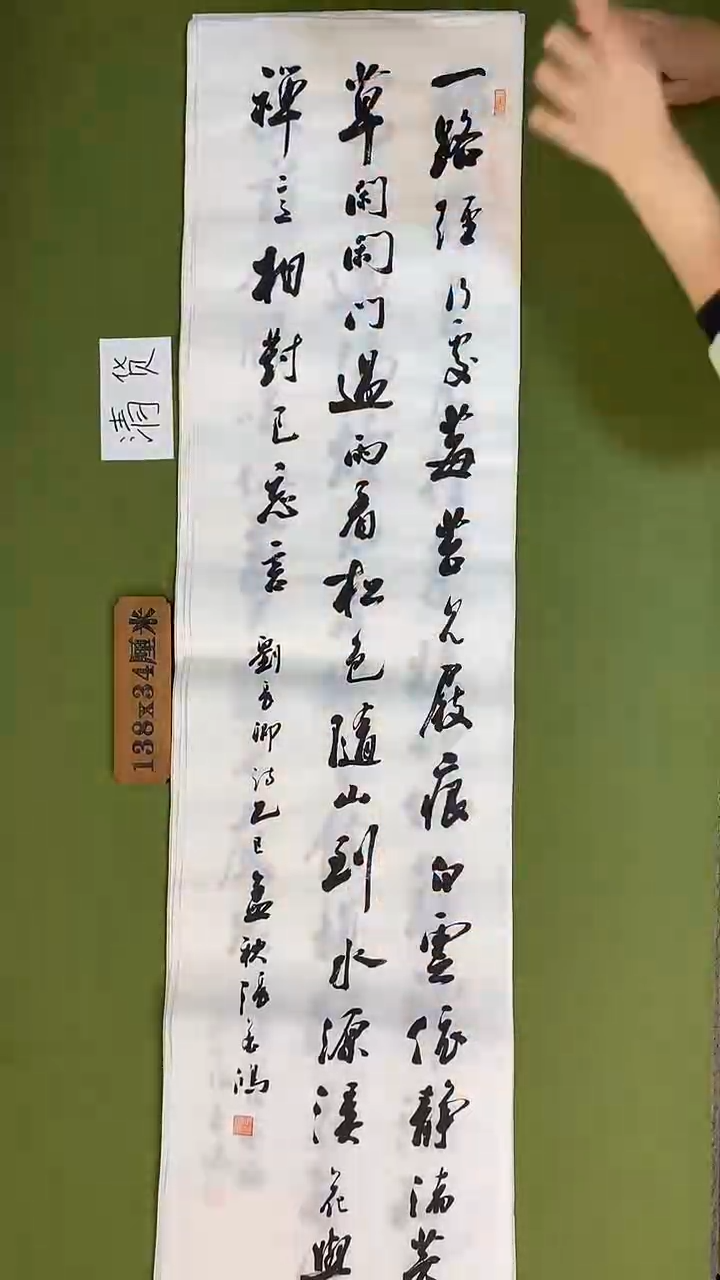 一路經行處莓苔見屐痕白雲依靜渚芳
草閑閑門過雨看松色隨山到水源溪花與
禪意相對已忘言
劉長卿詩乙巳孟秋張金鴻
138x34厘米